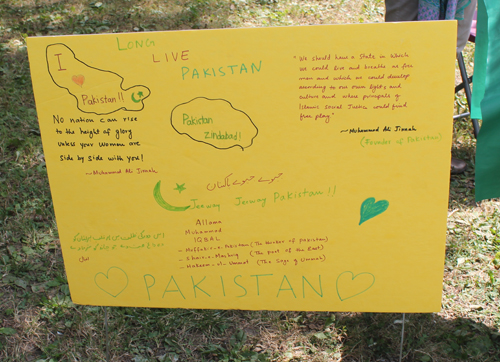 LONG
LIVE
PAKISTAN
I
Pakistan !!
No nation can rise
to the height of glory
unless your women are
side by side with you!
~ Mohammad Ali Jinnah
Pakistan
Zindabad!
"We should have a State in which
we could live and breathe as free
men and which we could develop
according to our own lights and
culture and where principles of
Islamic Social Justice could find
free play"
~ Mohammad Ali Jinnah
(Founder of Pakistan)
جیوے جیوے پاکستان
Jeevay Jeevay Pakistan !!
Allama
Muhammad
IQBAL
- Muffakir-e-Pakistan (The thinker of Pakistan)
- Shair-e-Mashriq (The poet of the East)
- Hakeem-ul-Ummat (The Sage of Ummah)
PAKISTAN